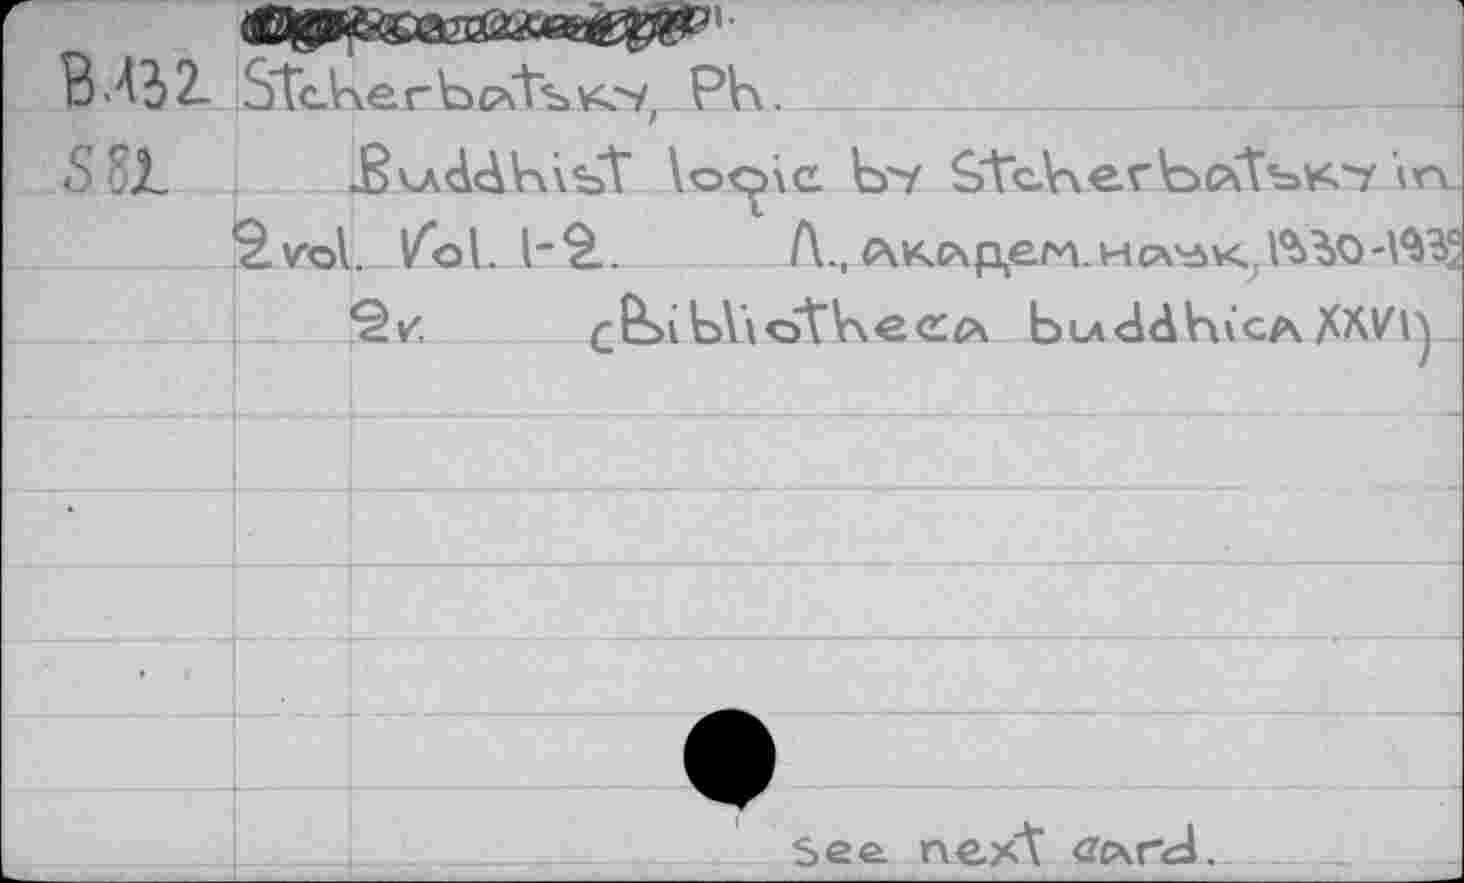 B.132 Stcherbatsky, Ph.
S 81 Buddhist logic by Stcherbatsky in
2 vol. Vol. 1-2. Л., академ. наук, 1930-1932
2v. (Bibliotheca buddhica XXVI)
See next card.